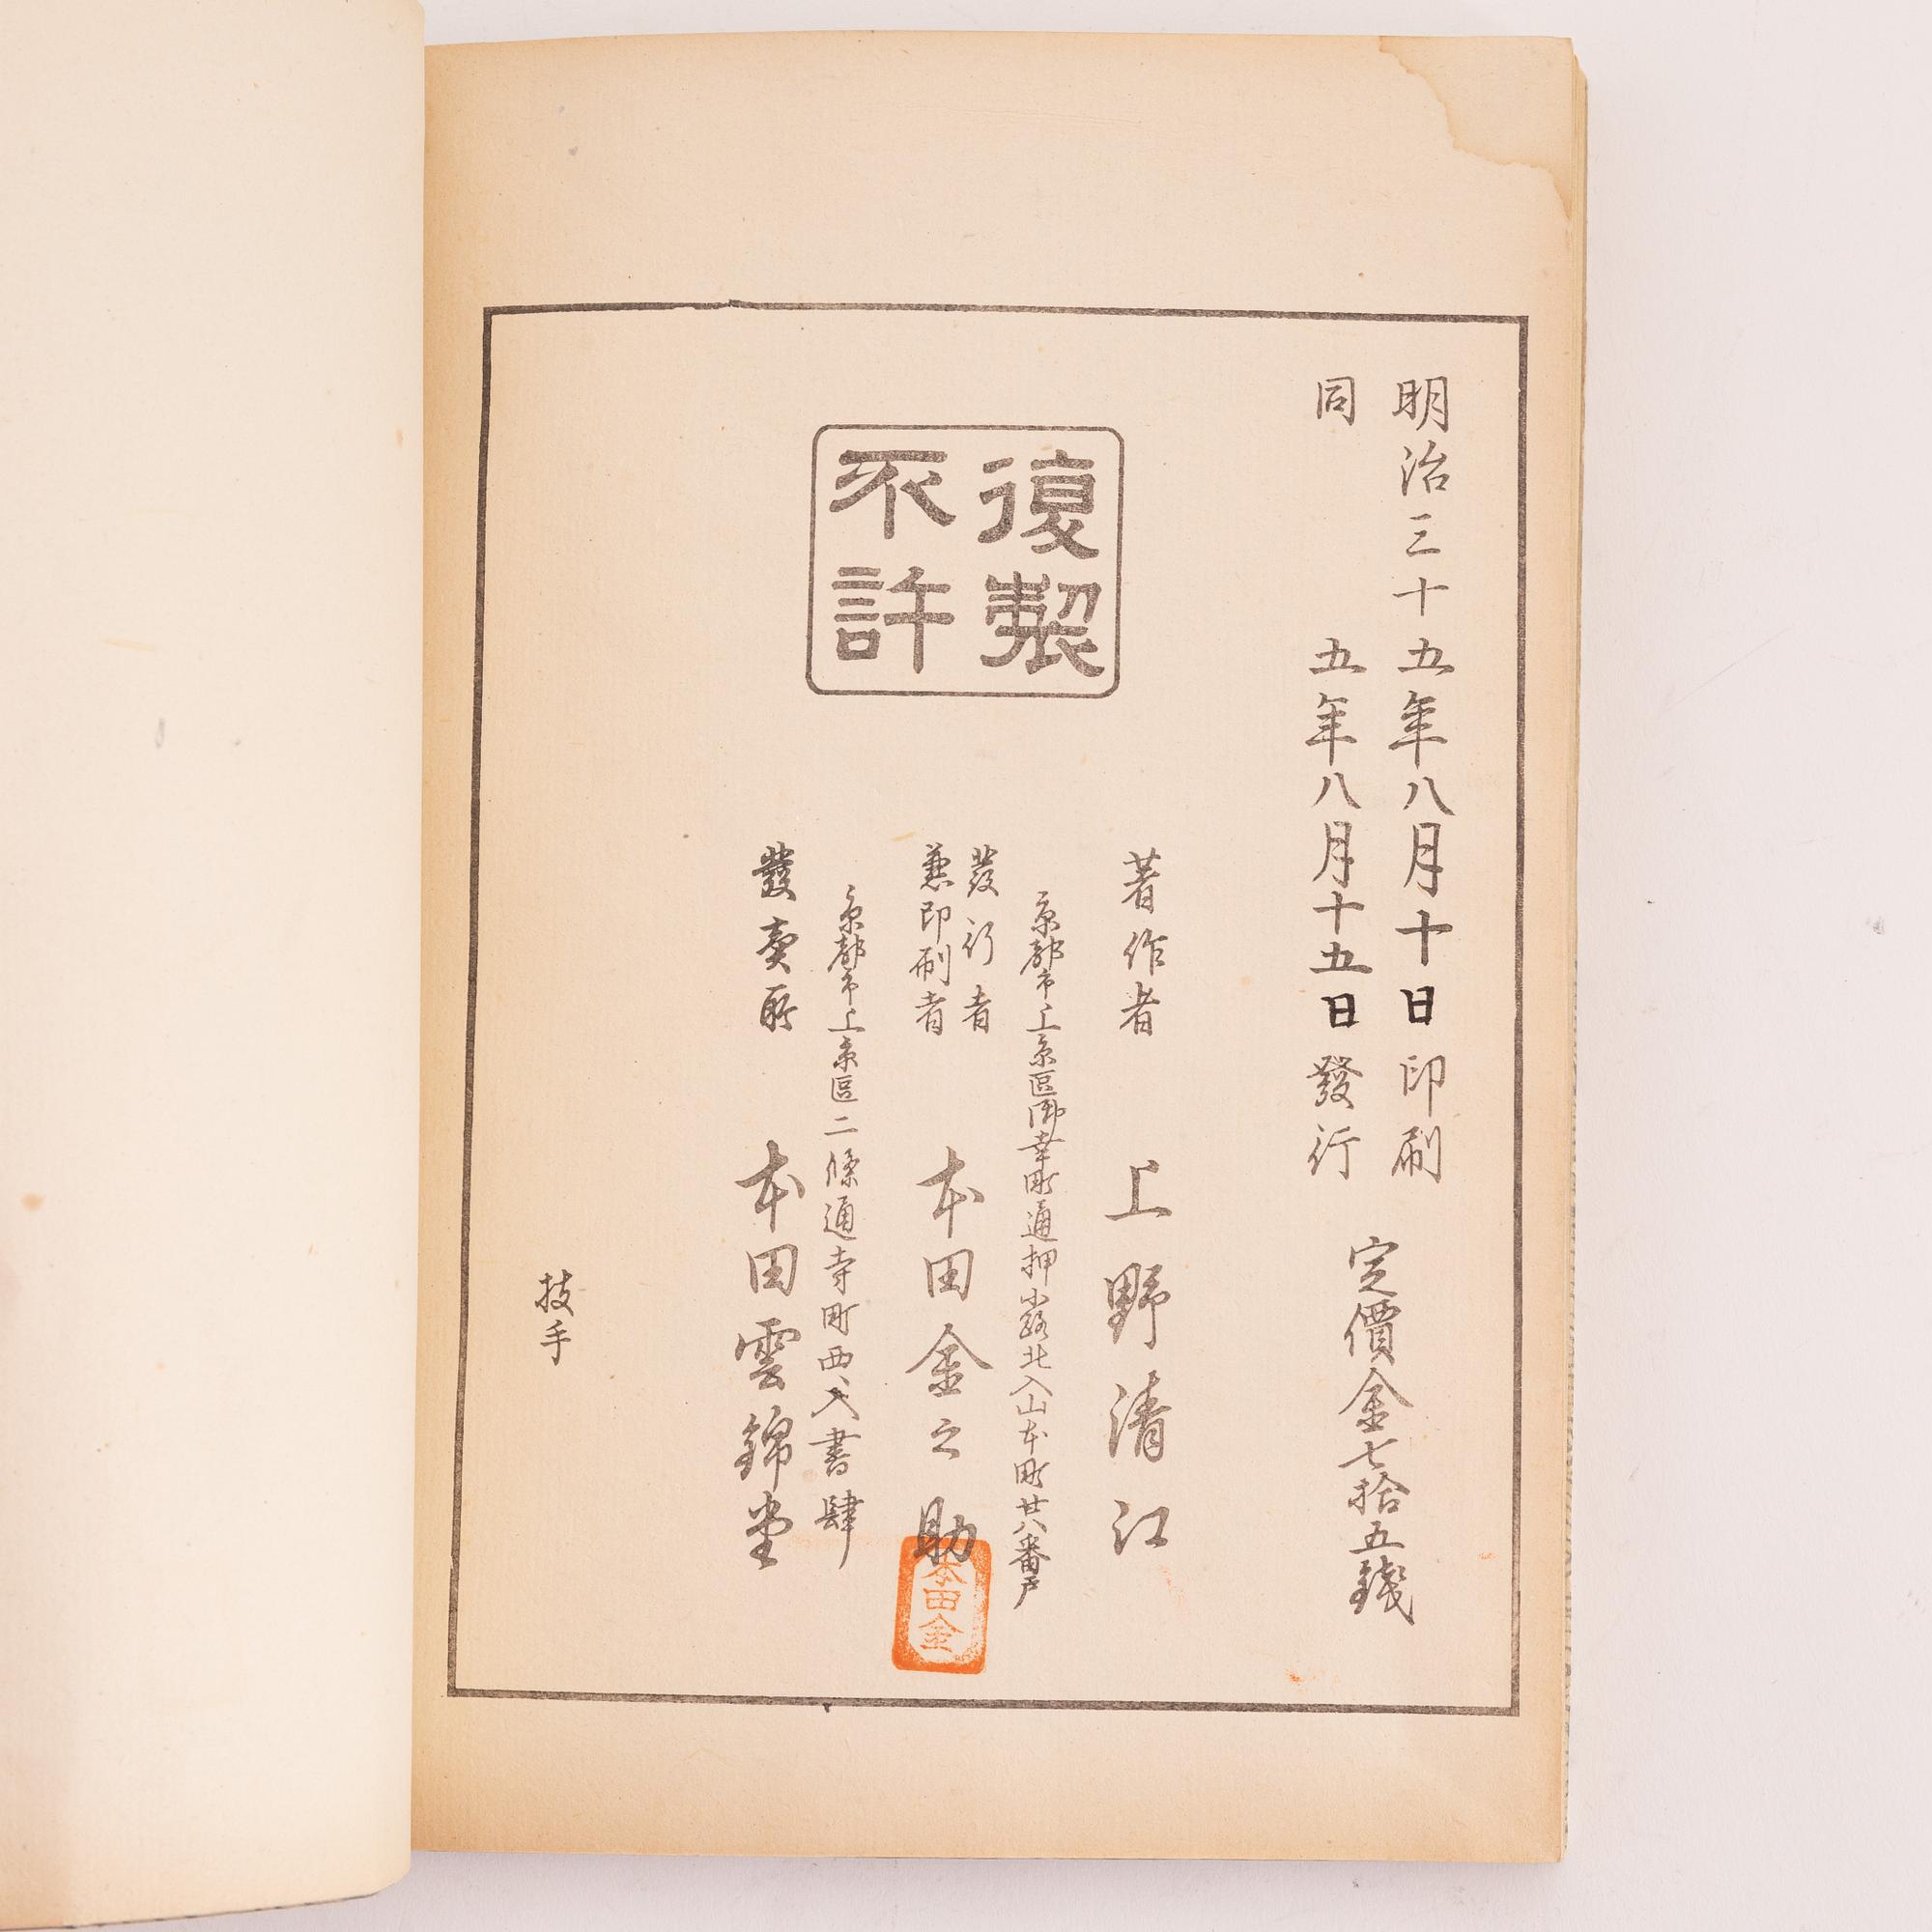 明治三十五年八月十日印刷
同五年八月十五日發行
定價金七拾五錢
復製
不許
著作者 上野清江
京都市上京區御幸町通押小路北入山本町廿八番戸
發行者
兼印刷者
本田金之助
本田金
京都市上京區二條通寺町西入書肆
發賣所 本田雲錦堂
技手